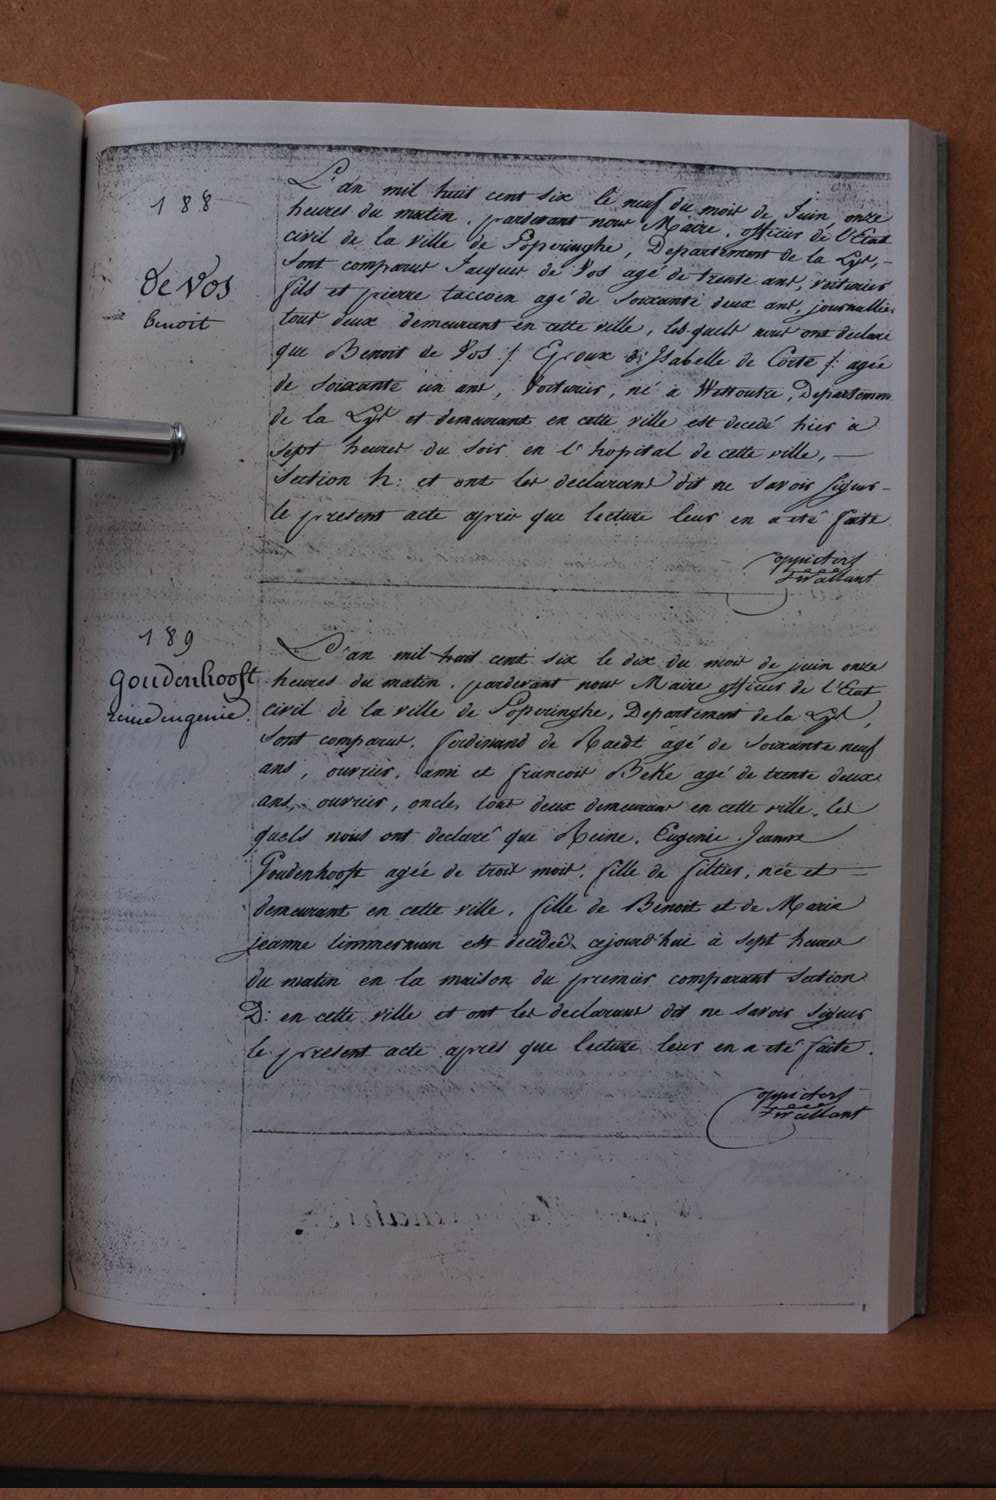 188
de Vos
benoit
L'an mil huit cent six le neuf du mois de Juin onze
heures du matin, pardevant nous Maire, officier de l'Etat
civil de la ville de Poperinghe, Departement de la Lys, -
sont comparus Jacques de Vos agé de trente ans, voiturier
fils et pierre taccoen agé de soixante deux ans, journallier
tous deux demeurant en cette ville, lesquels nous ont déclaré
que Benoit de Vos /: Epoux d'Isabelle de Corte /: agée
de soixante un ans, Voiturier, né à Westoutre, Departemen
de la Lys et demeurant en cette ville est decedé hier à
sept heures du soir en l'hopital de cette ville, -
Section h: et ont les declarans dit ne savoir signer -
le present acte après que lecture leur en a eté faite
189
goudenhooft
reine eugenie.
L'an mil huit cent six le dix du mois de juin onze
heures du matin, pardevant nous Maire officier de l'Etat
civil de la ville de Poperinghe, Departement de la Lys,
sont comparus, ferdinand de Raedt agé de soixante neuf
ans, ouvrier, ami et francois Beke agé de trente deux
ans, ouvrier, oncle, tous deux demeurans en cette ville, les
quels nous ont declaré que Reine, Eugenie Jeanne
Goudenhooft agée de trois mois, fille de filtier, née et -
demeurant en cette ville, fille de Benoit et de Marie
jeanne timmerman est decedée cejourd'hui à sept heures
du matin en la maison du premier comparant Section
D: en cette ville et ont les declarans dit ne savoir signer
le present acte après que lecture leur en a eté faite.